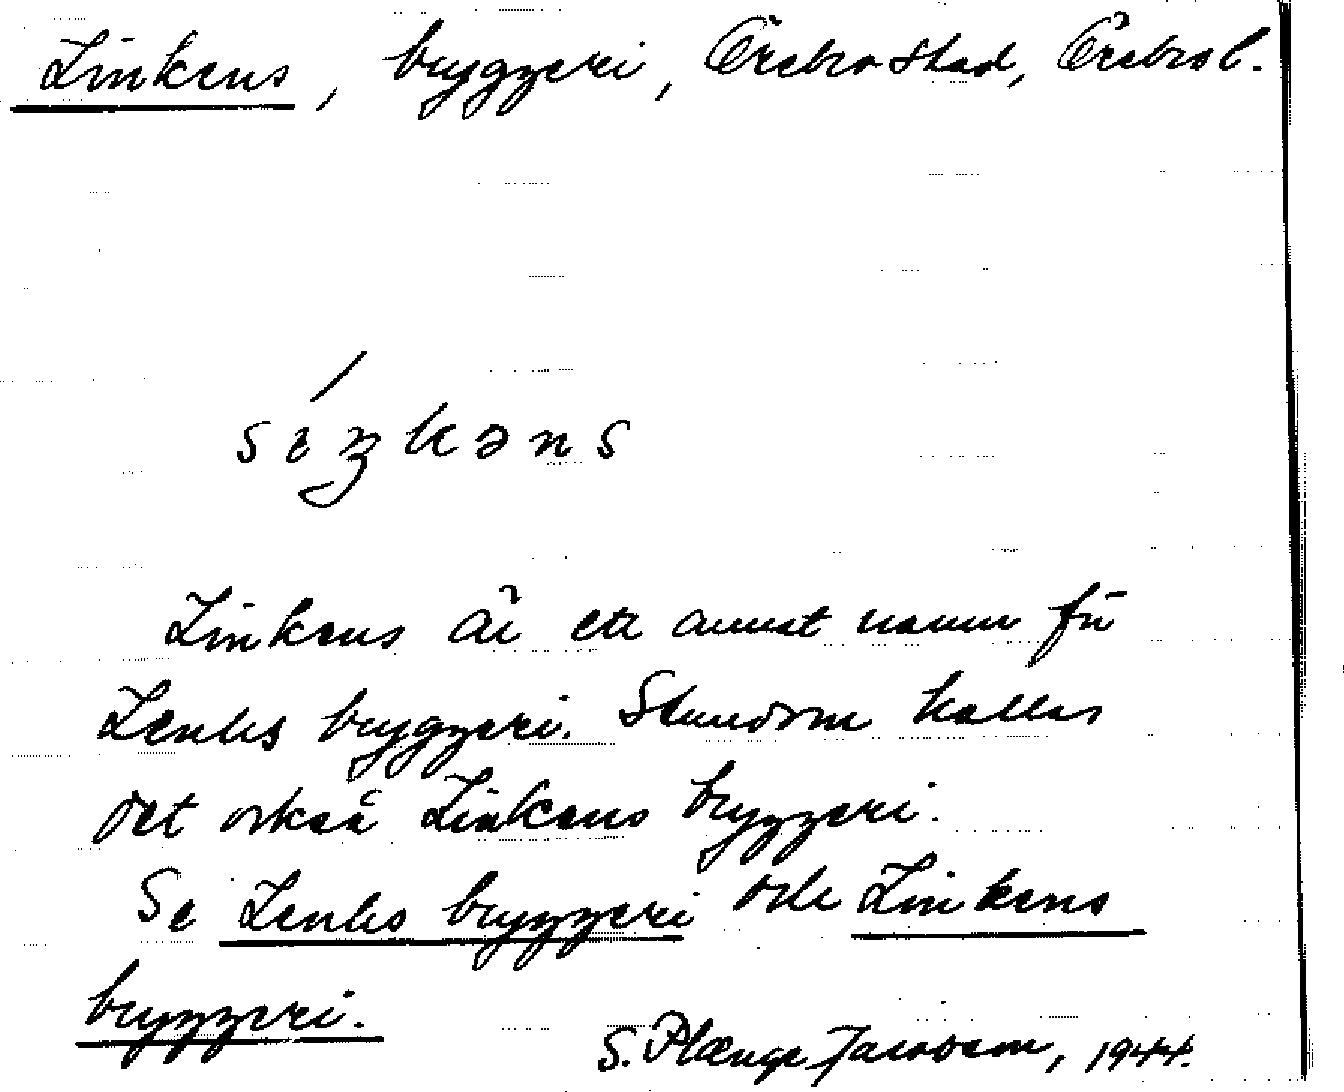 Linkens, bryggeri, Örebro stad, Örebro l.
Linkens är ett annat namn för
Lenhs bryggeri. Stundom kallas
det också Linkens bryggeri.
Se Lenhs bryggeri och Linkens
bryggeri.
S. Plænge Jacobson, 1944.